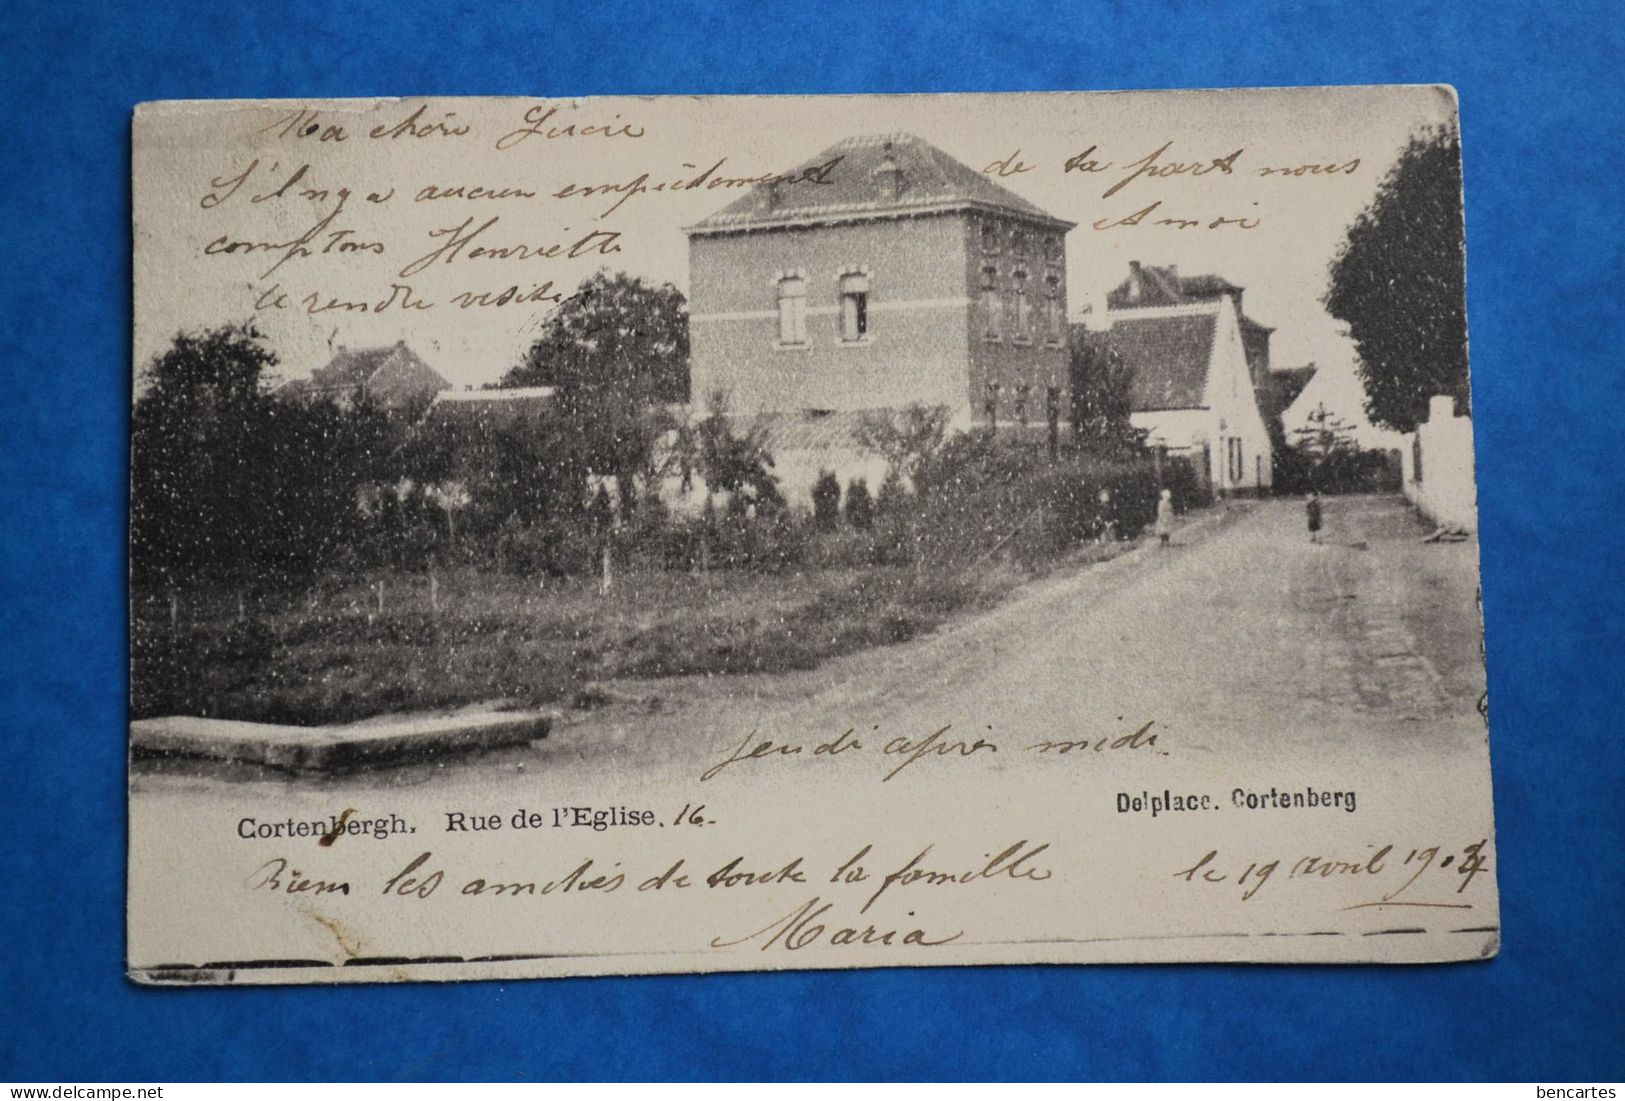 Ma chère Lucie
S'il n'y a aucun empêchement de ta part nous
comptons Henriette & moi
te rendre visite
jeudi après midi.
Cortenbergh, Rue de l'Eglise. 16.
Delplace. Cortenberg
Bien les amitiés de toute la famille
le 19 avril 1904
Maria
bencartes